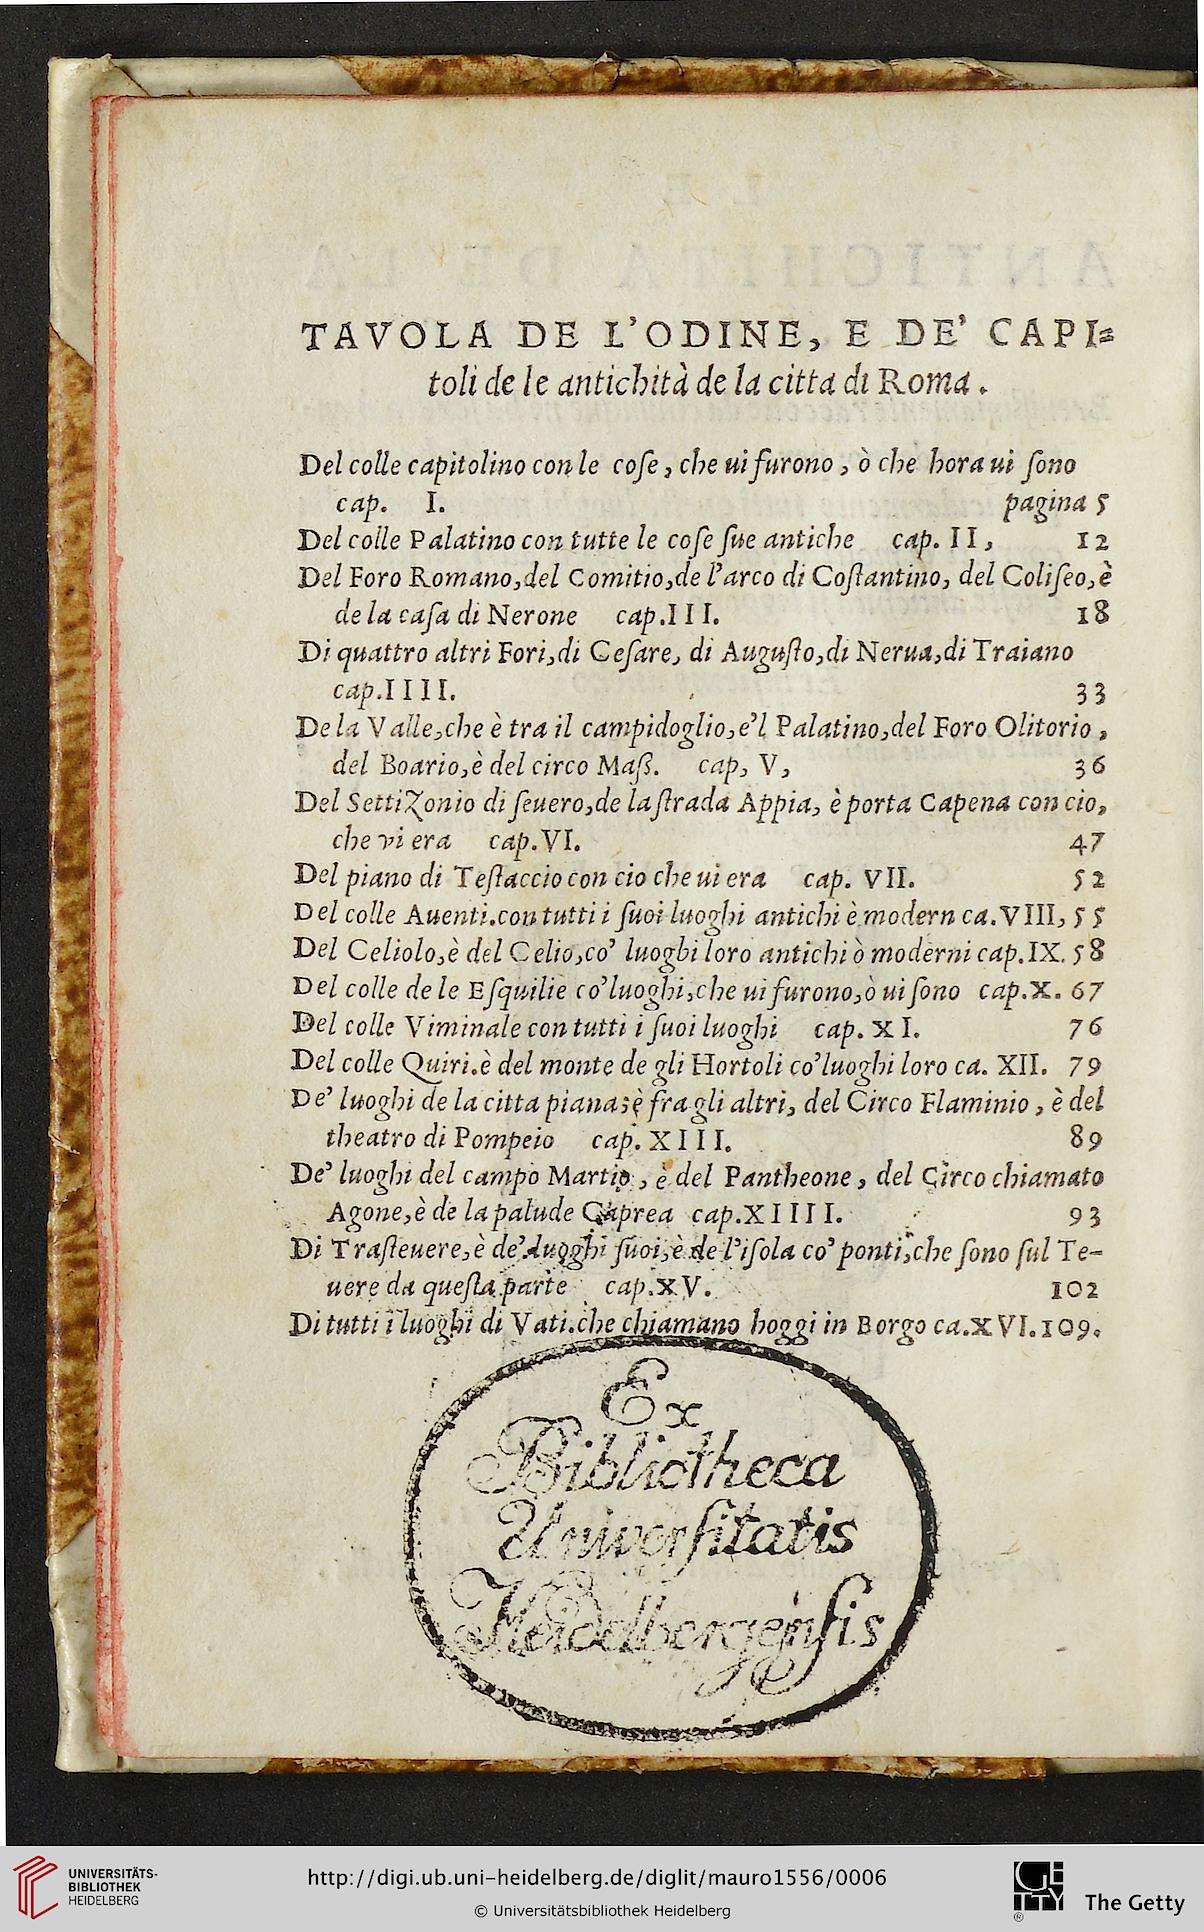 TAVOLA DE L'ODINE, E DE' CAPI=
toli de le antichità de la citta di Roma.
Del colle capitolino con le coſe, che ui furono, ò che hora ui ſono
cap. I. pagina 5
Del colle Palatino con tutte le coſe ſue antiche cap. II, 12
Del Foro Romano, del Comitio, de l'arco di Coſtantino, del Coliſeo, è
de la caſa di Nerone cap. III. 18
Di quattro altri Fori, di Ceſare, di Auguſto, di Nerua, di Traiano
cap. IIII. 33
De la Valle, che è tra il campidoglio, e'l Palatino, del Foro Olitorio,
del Boario, è del circo Maß. cap, V, 36
Del Settizonio di ſeuero, de la ſtrada Appia, è porta Capena con cio,
che vi era cap. VI. 47
Del piano di Teſtaccio con cio che ui era cap. VII. 52
Del colle Auenti. con tutti i ſuoi luoghi antichi è modern ca. VIII, 55
Del Celiolo, è del Celio, co' luoghi loro antichi ò moderni cap. IX. 58
Del colle de le Eſquilie co' luoghi, che ui furono, ò ui ſono cap. X. 67
Del colle Viminale con tutti i ſuoi luoghi cap. XI. 76
Del colle Quiri. è del monte de gli Hortoli co' luoghi loro ca. XII. 79
De' luoghi de la citta piana; è fra gli altri, del Circo Flaminio, è del
theatro di Pompeio cap. XIII. 89
De' luoghi del campo Martio, è del Pantheone, del Circo chiamato
Agone, è de la palude Caprea cap. XIIII. 93
Di Traſteuere, è de' luoghi ſuoi, è de l'iſola co' ponti, che ſono ſul Te-
uere da queſta parte cap. XV. 102
Di tutti i luoghi di Vati. che chiamano hoggi in Borgo ca. XVI. 109.
Ex
Bibliotheca
Univerſitatis
Heidelbergenſis
UNIVERSITÄTS-
BIBLIOTHEK
HEIDELBERG
http://digi.ub.uni-heidelberg.de/diglit/mauro1556/0006
© Universitätsbibliothek Heidelberg
GETTY
®
The Getty